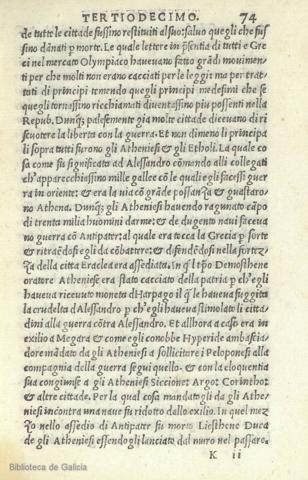 TERTIODECIMO. 74
de tutte le cittade fussino restituiti al suo: saluo quegli che fus
sino dãnati p morte. Le quale lettere in p̃sentia di tutti e Gre
ci nel mercato Olympiaco haueuano fatto grãdi mouimen
ti per che molti non erano cacciati per le leggi: ma per trat
tati di principi temendo quegli principi medesimi che se
quegli tornassino richiamati diuentassino piu possenti nella
Repub. Dunq; palesemente gia molte cittade diceuano di ri
scuotere la liberta con la guerra. Et non dimeno li principa
li sopra tutti furono gli Atheniesi & gli Etholi. La quale co
sa come fu significata ad Alessandro cõmando alli collegati
ch'apparecchiassino mille gallee cõ le quali egli facessi guer
ra in oriente: & era la uia cõ grãde possanza & guastaro
no Athena. Dunq; gli Atheniesi hauendo ragunato cãpo
di trenta milia huomini darme: & de dugento naui faceua
no guerra cõ Antipatre: al quale era tocca la Grecia p sorte
& ritraẽdosi egli da cõbattere: & difendẽdosi nella fortez
za della citta Eraclea era assediato. In q̃l tp̃o Demosthene
oratore Atheniese era stato cacciato della patria p ch'egli
haueua riceuuto moneta d'Harpago il q̃le haueua fuggita
la crudelta d'Alessandro p ch'egli haueua stimolato li citta
dini alla guerra cõtra Alessandro. Et allhora a caso era in
exilio a Megara & come egli conobbe Hyperide ambascia
dore mãdato da gli Atheniesi a sollicitore i Peloponesi alla
compagnia della guerra segui quello: & con la eloquentia
sua congiunse a gli Atheniesi Siccione: Argo: Corintho:
& altre cittade. Per la qual cosa mandatogli da gli Athe
niesi incontra una naue fu ridotto dallo exilio. In quel mez
zo nello assedio di Antipatre fu morto Liesthene Duca
de gli Atheniesi essendogli lanciato dal muro nel passare.
K ii
Biblioteca de Galicia